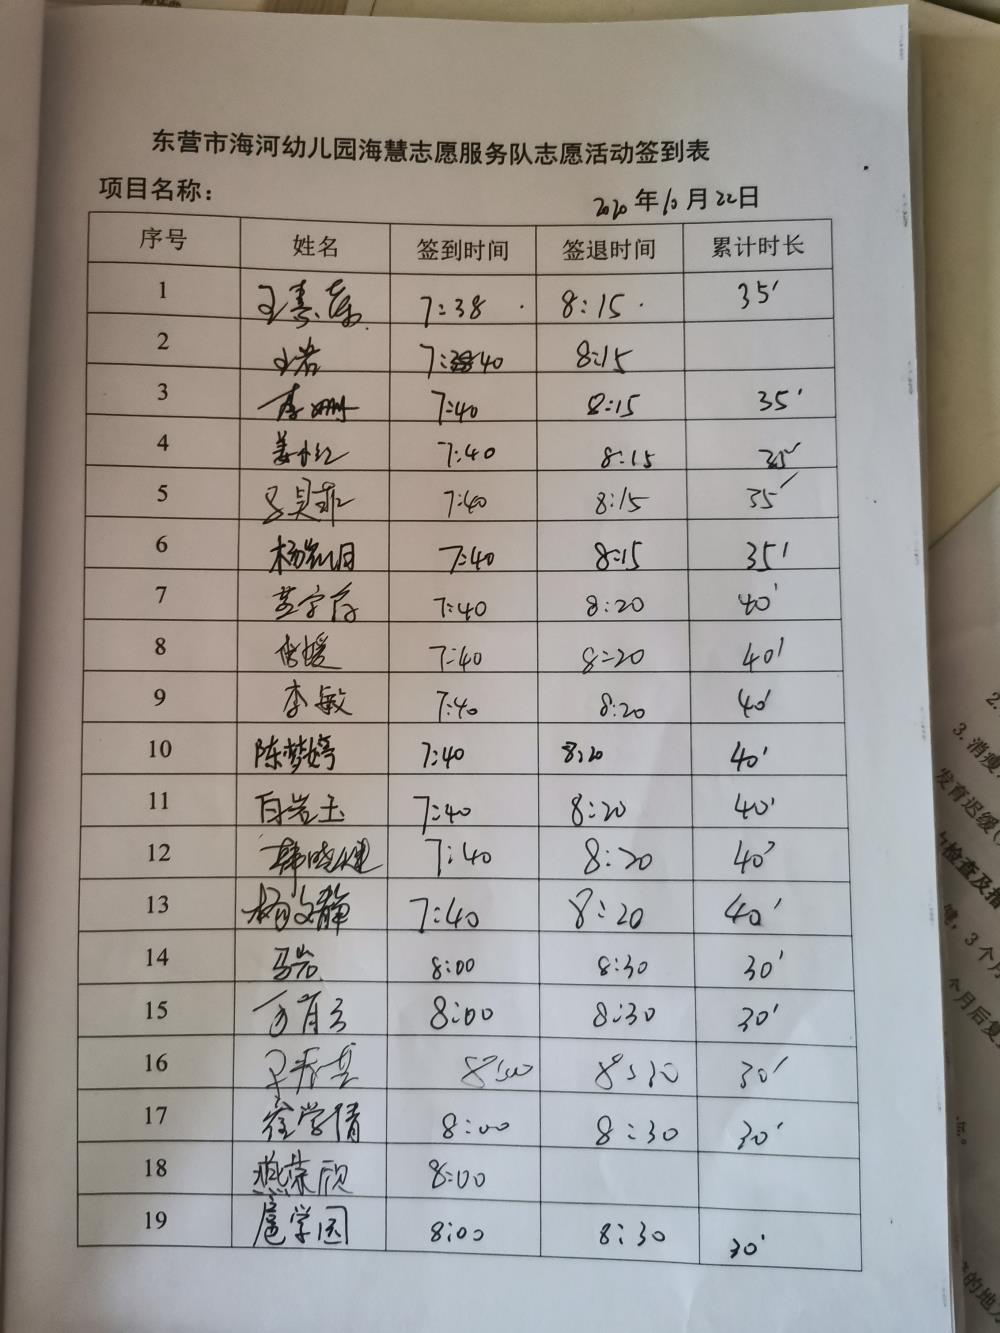 东营市海河幼儿园海慧志愿服务队志愿活动签到表
项目名称：
2020年10月22日
序号 姓名 签到时间 签退时间 累计时长
1 7:38 8:15 35′
2 王岩 7:40 8:15
3 李姗 7:40 8:15 35′
4 姜小红 7:40 8:15 35′
5 7:40 8:15 35′
6 7:40 8:15 35′
7 7:40 8:20 40′
8 7:40 8:20 40′
9 李敏 7:40 8:20 40′
10 陈梦婷 7:40 8:20 40′
11 白岩玉 7:40 8:20 40′
12 韩晓健 7:40 8:20 40′
13 杨文静 7:40 8:20 40′
14 马岩 8:00 8:30 30′
15 8:00 8:30 30′
16 8:00 8:30 30′
17 崔学倩 8:00 8:30 30′
18 燕荣欣 8:00
19 扈学园 8:00 8:30 30′
2.
3.消瘦
发育迟缓
检查及指
健，3个月
个月后复
的地方